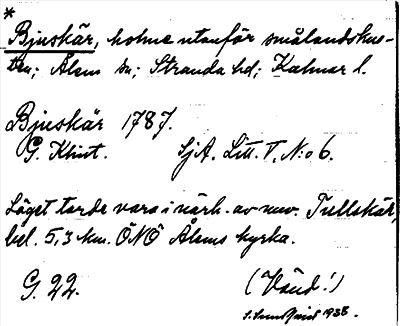 *
Bjuskär, holme utanför smålandskus-
ten; Ålems sn; Stranda hd; Kalmar l.
Bjuskär 1787.
G. Klint. SjA. Litt. T, N:o 6.
Läget torde vara i närh. av nuv. Tullskär,
bel. 5,3 km. ÖNÖ Ålems kyrka.
G. 22. (Vänd!)
1938.